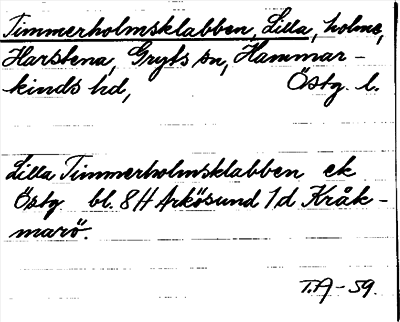 Timmerholmsklabben, Lilla, holme,
Harstena, Gryts sn, Hammar-
kinds hd, Östg. l.
Lilla Timmerholmsklabben ek
Östg. bl. 8H Arkösund 1d Kråk-
marö.
T.A-59.